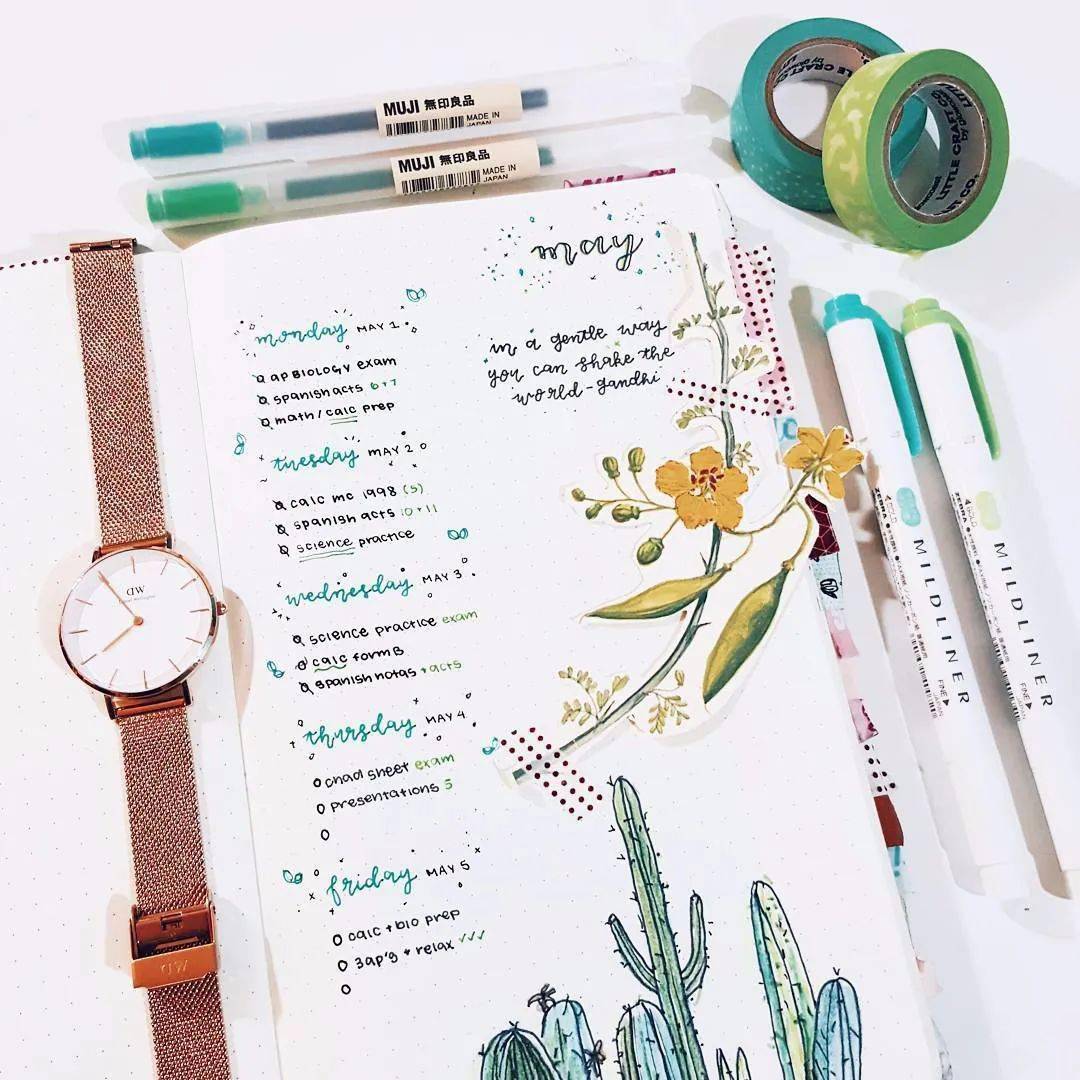 MUJI 無印良品
MADE IN
JAPAN
MUJI 無印良品
MADE IN
JAPAN
LITTLE CRAFT CO.
LITTLE CRAFT CO.
may
in a gentle way
you can shake the
world - gandhi
monday MAY 1
ap BIOLOGY exam
spanish acts 6+7
math/calc prep
tuesday MAY 2
calc mc 1998 (5)
spanish acts 10+11
science practice
wednesday MAY 3
science practice exam
calc form B
spanish notas + acts
thursday MAY 4
chad sheet exam
presentations 5
friday MAY 5
calc + bio prep
3 ap's + relax ✓✓✓
DW
Daniel Wellington
DW
ZEBRA
MILDLINER
FINE
JAPAN
ZEBRA
MILDLINER
FINE
JAPAN